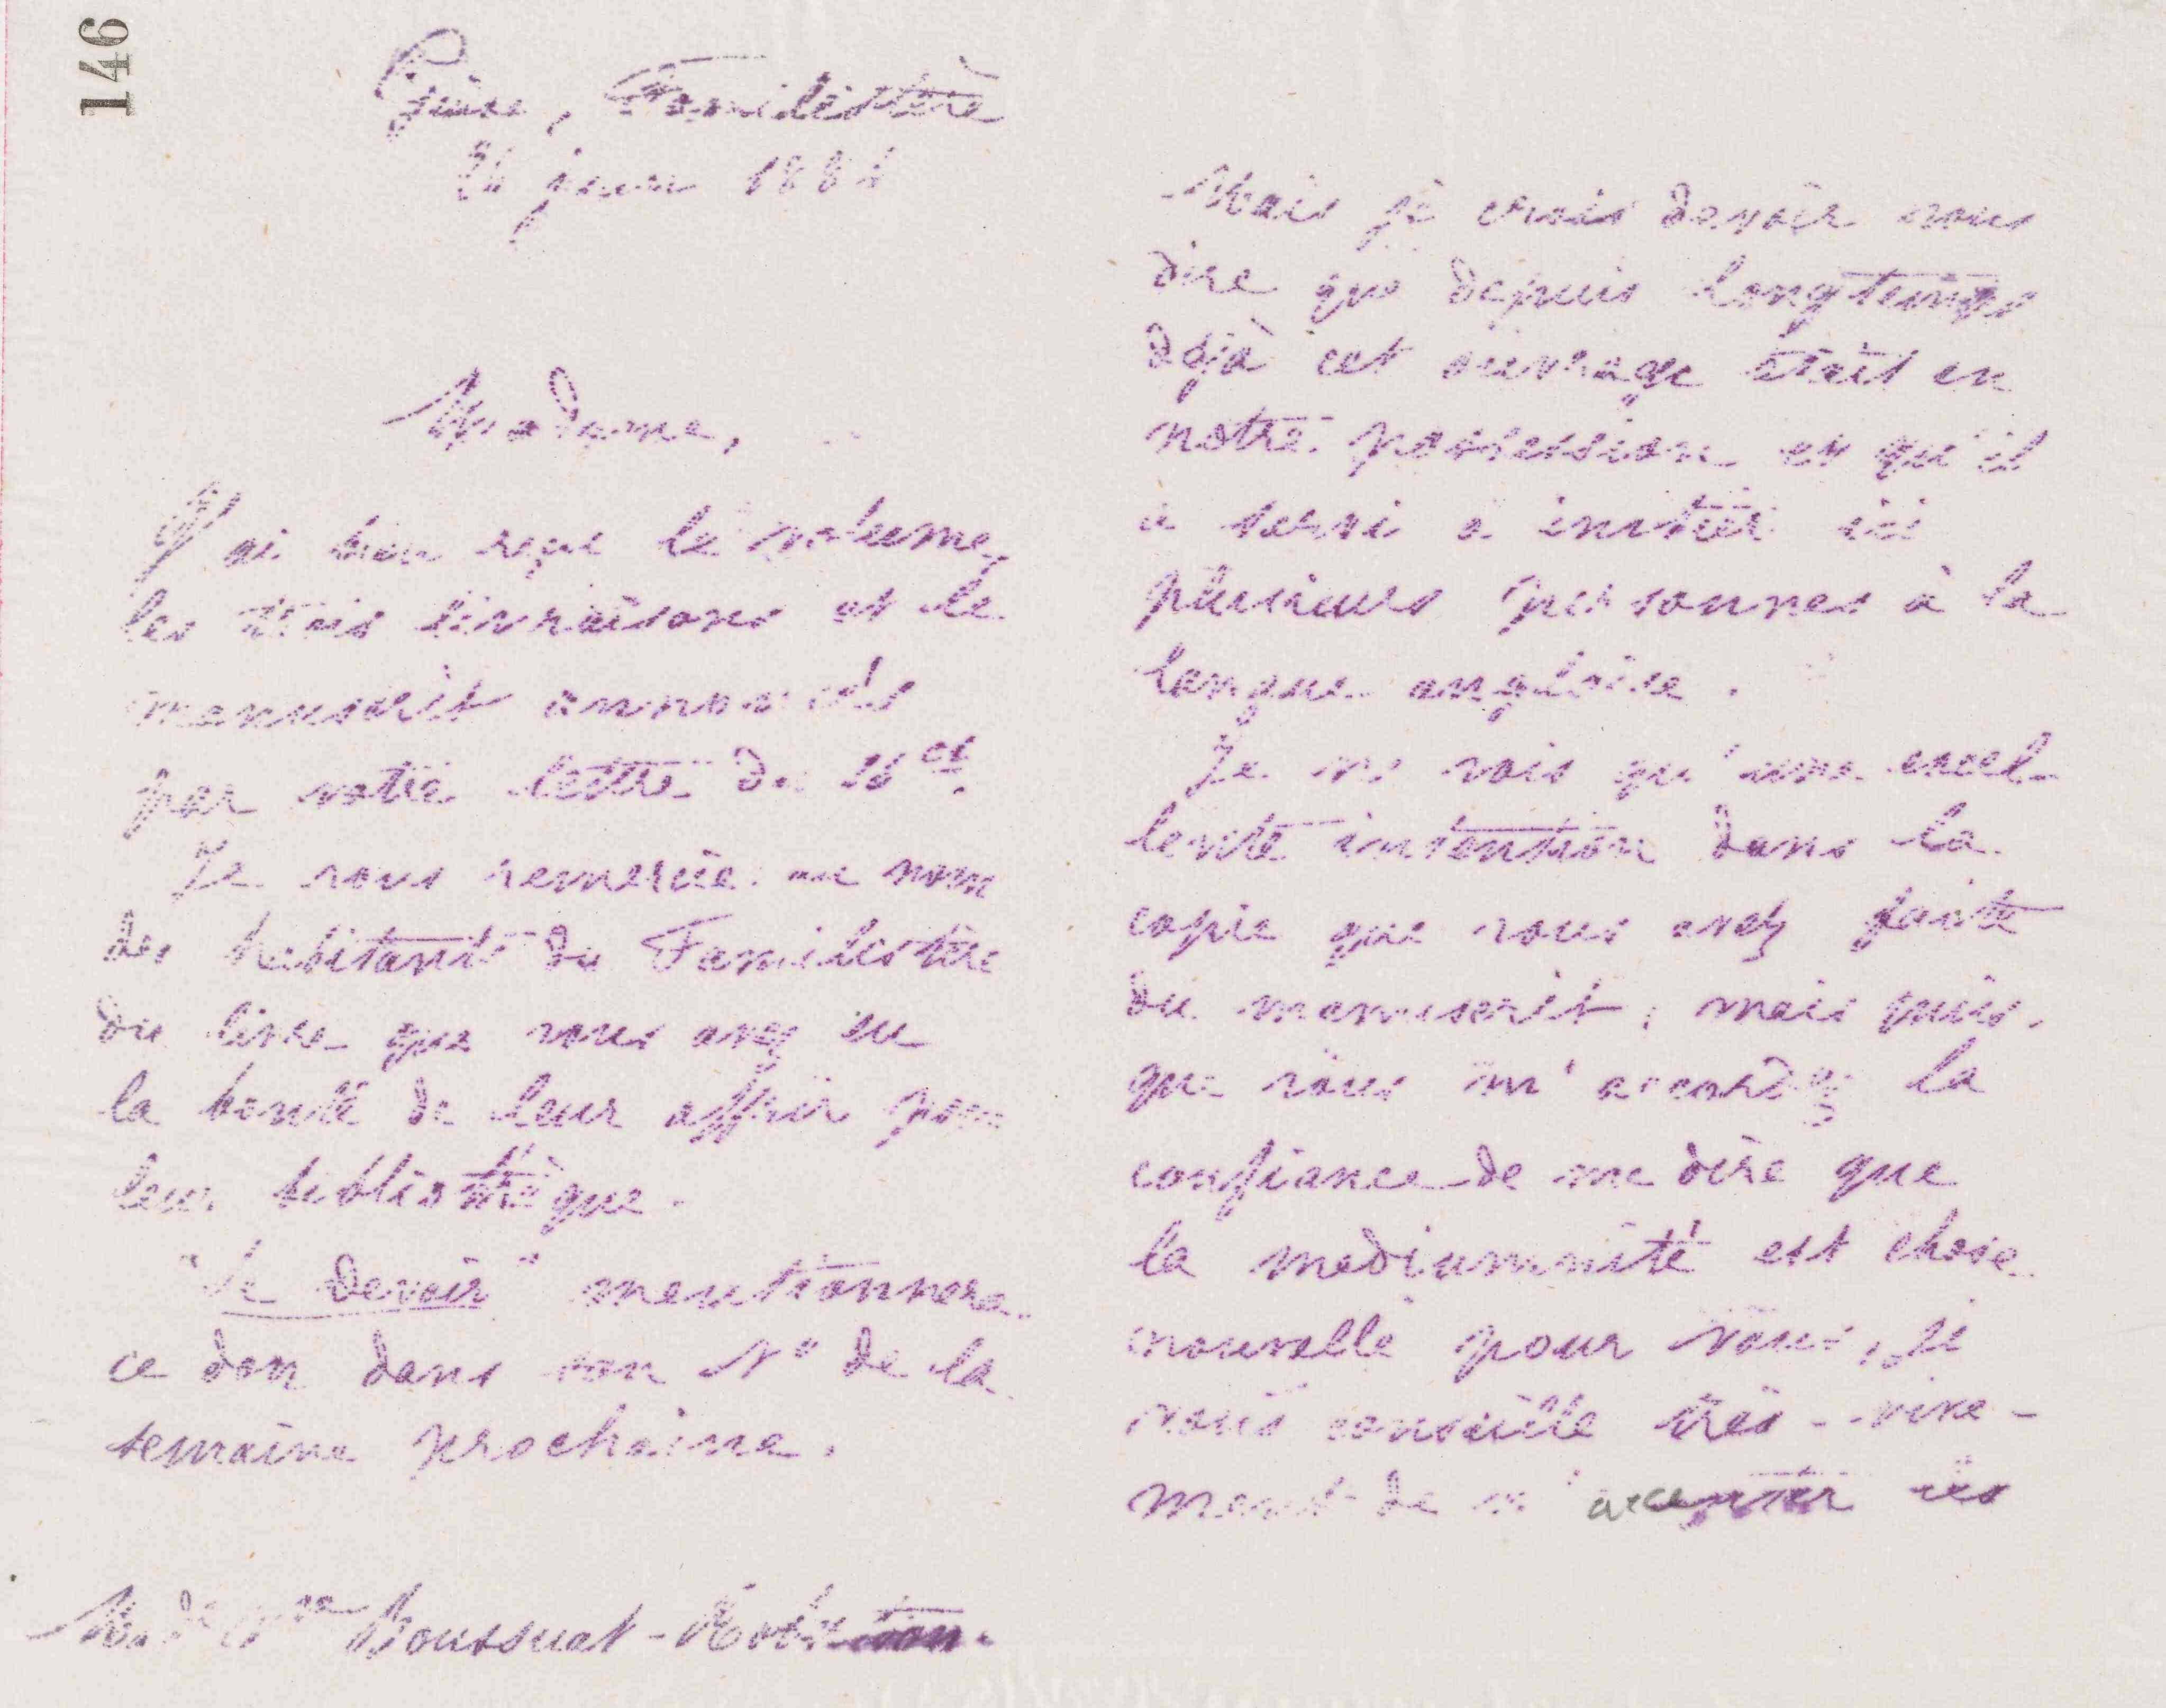 146
Guise, Familistère
24 juin 1881
Madame,
J'ai bien reçu le volume,
les trois livraisons et le
manuscrit annoncés
par votre lettre du 16 ct.
Je vous remercie au nom
des habitants du Familistère
du livre que vous avez eu
la bonté de leur offrir pour
leur bibliothèque.
"Le Devoir" mentionnera
ce don dans son No de la
semaine prochaine.
Moussuat -
Mais je crois devoir vous
dire que depuis longtemps
déjà cet ouvrage était en
notre possession et qu'il
a servi à initier ici
plusieurs personnes à la
langue anglaise.
Je ne vois qu'une excel-
lente intention dans la
copie que vous avez faite
du manuscrit; mais puis-
que vous m'accordez la
confiance de me dire que
la médiumnité est chose
nouvelle pour vous, je
vous conseille très-vive-
ment de n'accepter ces